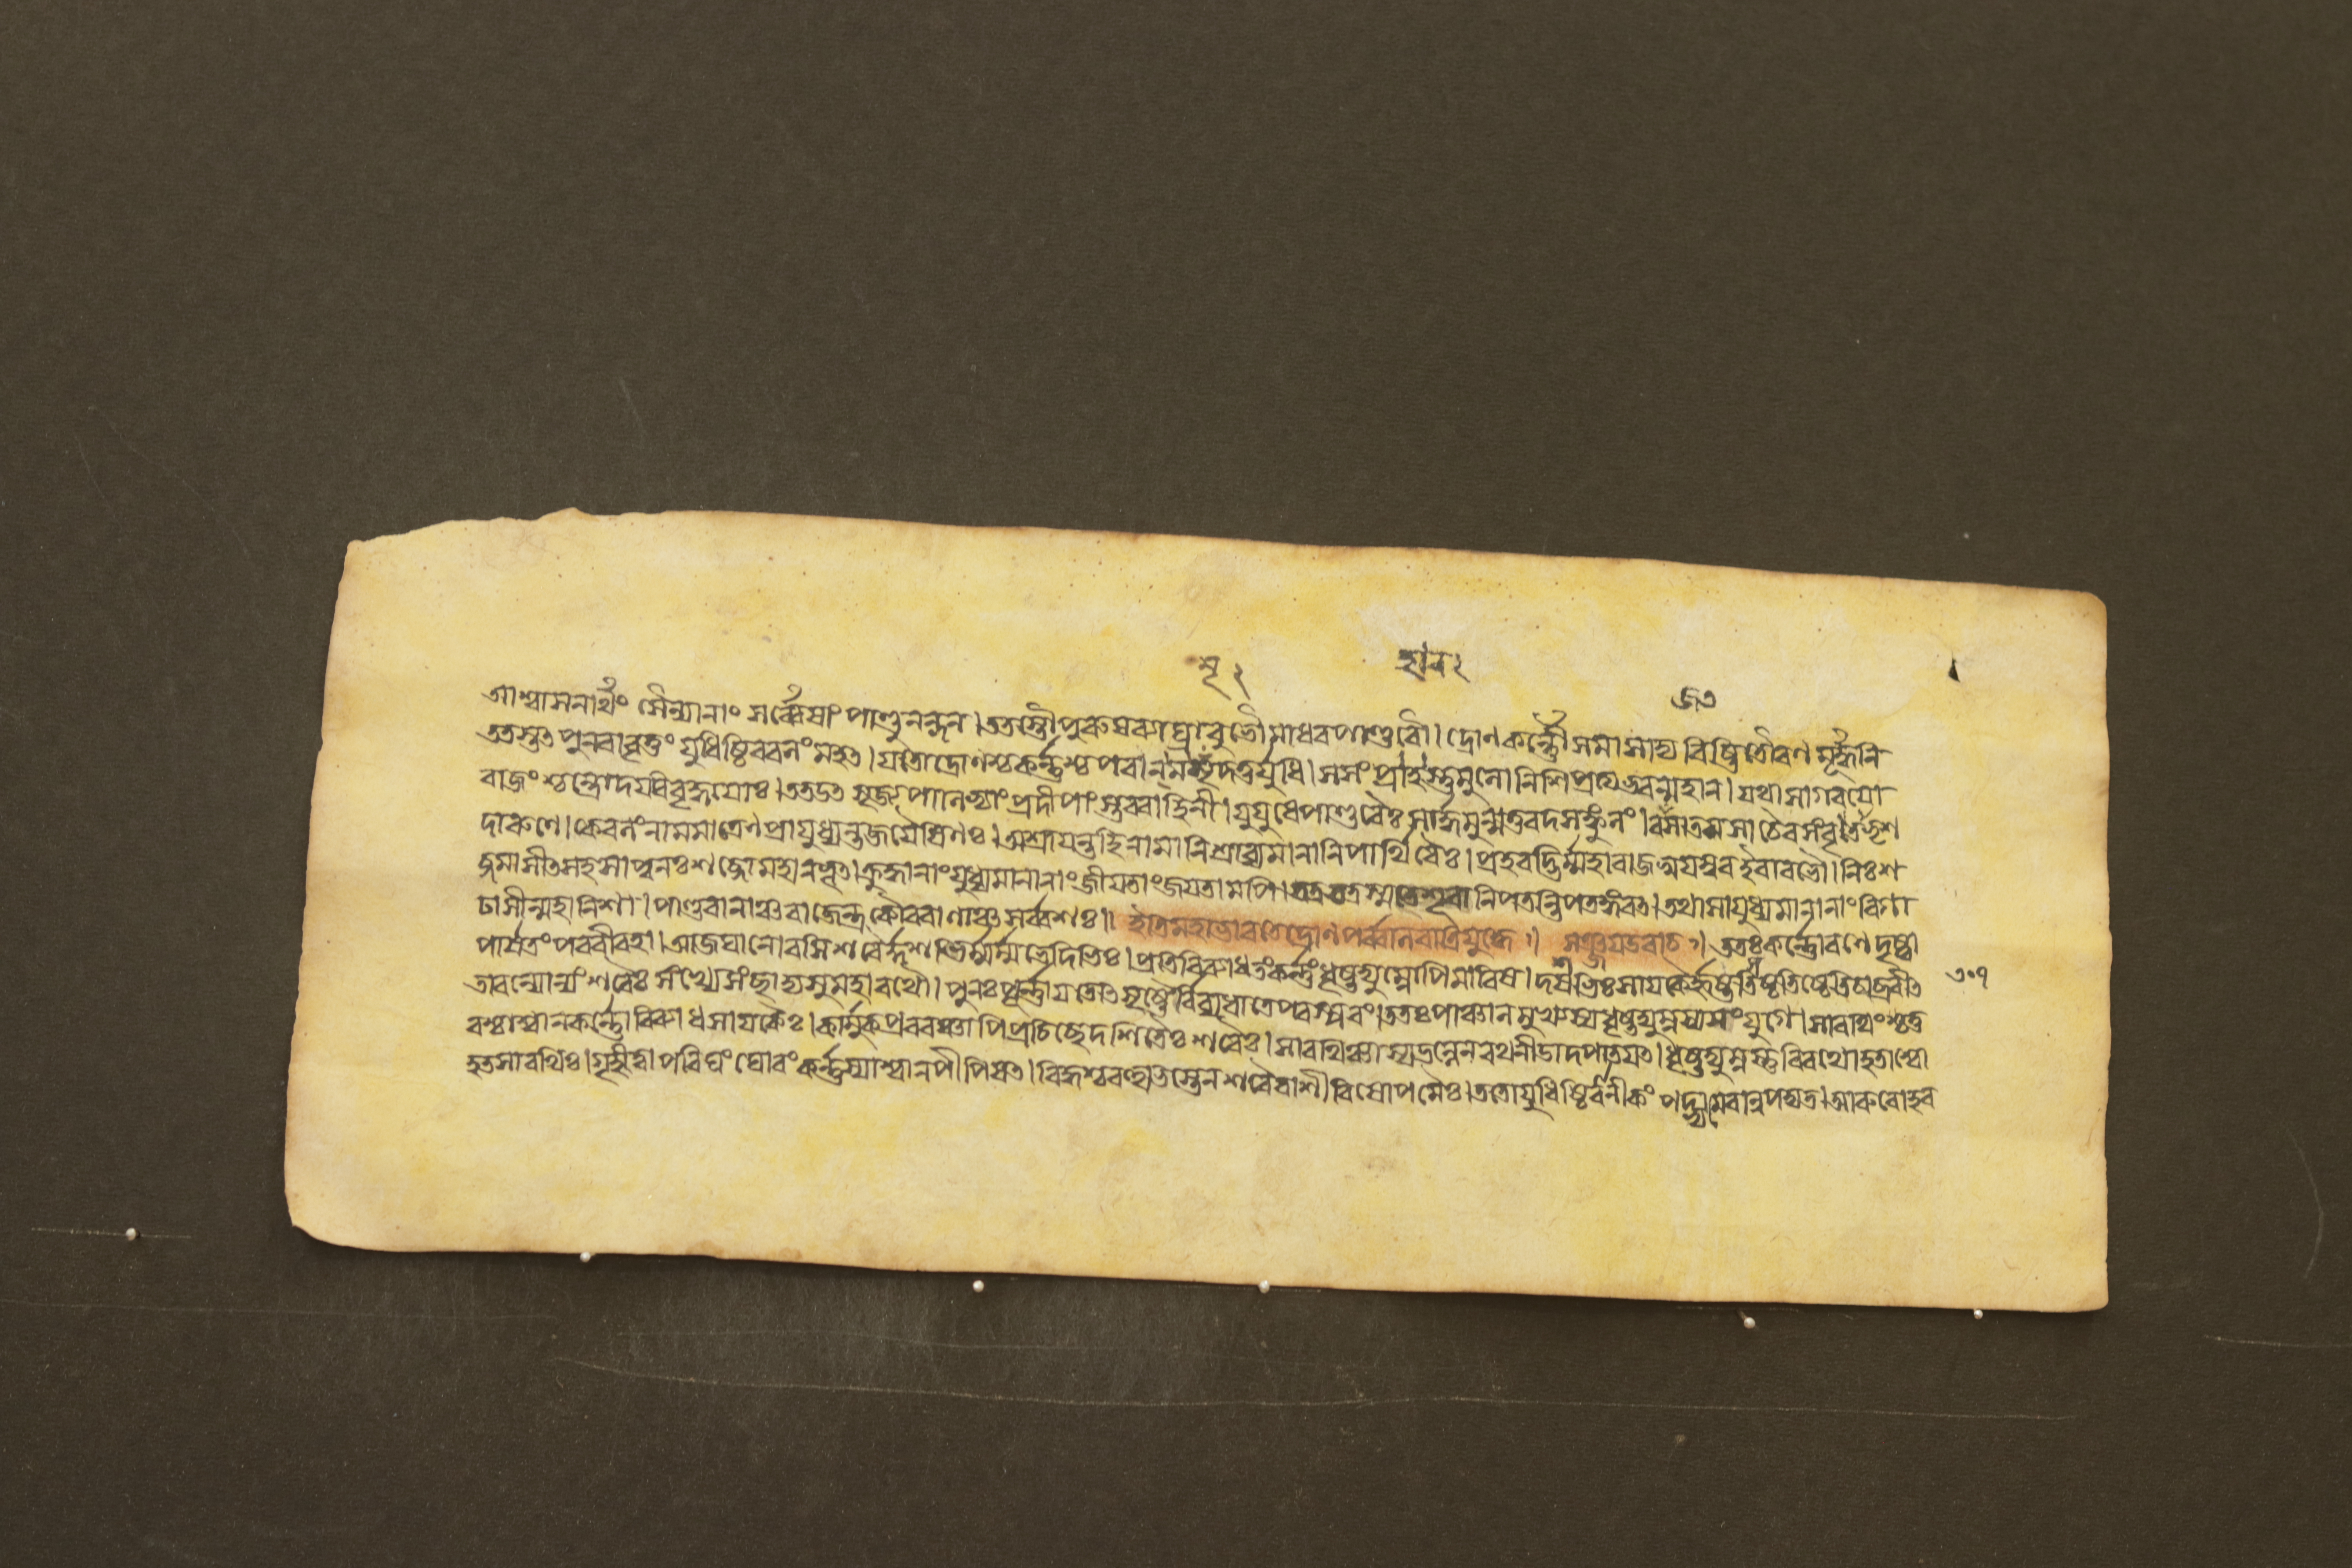 আশ্বাসনার্থং সৈন্যানাং সর্ব্বেষাং পাণ্ডুনন্দন। ততস্তৌ পুরুষব্যাঘ্রাবুভৌ মাধবপাণ্ডবৌ। দ্রোণকর্ন্নৌ সমাসাদ্য বিষ্ঠিতৌ রণমূর্দ্ধনি
ততস্তৎ পুনরাবৃত্তং যুধিষ্ঠিরবলং মহৎ। যতো দ্রোণশ্চ কর্ন্নশ্চ পরান্ ময়ৃদতুর্যুধি। স সংপ্রহারস্তুমুলো নিশি প্রত্যভবন্মহান্। যথা সাগরয়ো
রাজংশ্চন্দ্রোদয়বিবৃদ্ধয়োঃ। তত উৎসৃজ্য পাণিভ্যাং প্রদীপাংস্তব বাহিনী। যুযুধে পাণ্ডবৈঃ সার্দ্ধমুন্মত্তবদসঙ্কুলং। রজসা তমসা চৈব সংবৃতে ভৃশ
দারুণে। কেবলং নামমাত্রেণ প্রাযুধ্যন্ত জয়ৈষিণঃ। অশ্রূয়ন্ত হি নামানি শ্রাব্যমানানি পার্থিবৈঃ। প্রহরদ্ভির্ম্মহারাজ স্বয়ম্বর ইবাবভৌ। নিঃশ
ব্দমাসীৎ সহসা পুনঃ শব্দো মহানভূৎ। ক্রুদ্ধানাং যুধ্যমানানাং জীয়তাং জয়তামপি। নিপতন্তি পতঙ্গবৎ। তথা সংযুধ্যমানানাং বিগা
ঢাসীন্মহানিশা। পাণ্ডবানাঞ্চ রাজেন্দ্র কৌরবাণাঞ্চ সর্ব্বশঃ॥ ইতি মহাভারতে দ্রোণপর্ব্বনি রাত্রিযুদ্ধে॥ সঞ্জয় উবাচ॥ ততঃ কর্ন্নো রণে দৃষ্ট্বা
পার্ষতং পরবীরহা। আজঘানোরসি শরৈর্দ্দশভির্ম্মর্ম্মভেদিভিঃ। প্রতিবিব্যাধ তং কর্ন্নং ধৃষ্টদ্যুম্নোপি মারিষ। দশভিঃ সায়কৈর্হৃষ্টস্তিষ্ঠ তিষ্ঠেতি চাব্রবীৎ
তাবন্যোন্যং শরৈঃ সংখ্যে সংচ্ছাদ্য সুমহারথৌ। পুনঃ পূর্ন্নায়তোৎসৃষ্টৈর্ব্বিব্যধাতে পরস্পরং। ততঃ পাঞ্চালমুখ্যস্য ধৃষ্টদ্যুম্নস্য সংযুগে। সারথিং চতু
রশ্চাশ্বান্ কর্ন্নো বিব্যাধ সায়কৈঃ। কার্মুকপ্রবরঞ্চাপি প্রচিচ্ছেদ শিতৈঃ শরৈঃ। সারথিঞ্চাস্য ভল্লেন রথনীডাদপাতয়ৎ। ধৃষ্টদ্যুম্নস্তু বিরথো হতাশ্বো
হতসারথিঃ। গৃহীত্বা পরিঘং ঘোরং কর্ন্নস্যাশ্বানপীপিষৎ। বিদ্ধশ্চ বহুভিস্তেন শরৈরাশীবিষোপমৈঃ। ততো যুধিষ্ঠিরানীকং পদ্ভ্যামেবান্বপদ্যত। আরুরোহ ব